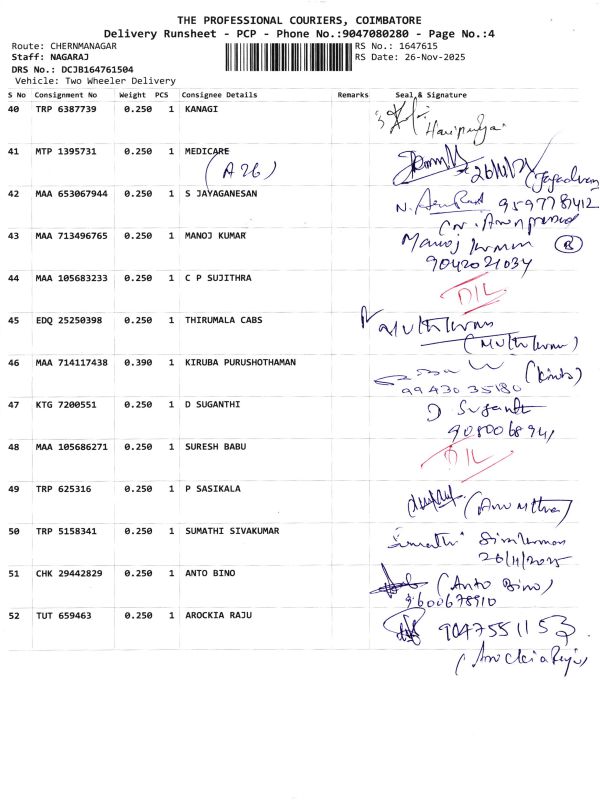 THE PROFESSIONAL COURIERS, COIMBATORE
Delivery Runsheet - PCP - Phone No.:9047080280 - Page No.:4
Route: CHERNMANAGAR RS No.: 1647615
Staff: NAGARAJ RS Date: 26-Nov-2025
DRS No.: DCJB164761504
Vehicle: Two Wheeler Delivery
S No Consignment No Weight PCS Consignee Details Remarks Seal & Signature
40 TRP 6387739 0.250 1 KANAGI
Haripriya
41 MTP 1395731 0.250 1 MEDICARE
(A 26)
42 MAA 653067944 0.250 1 S JAYAGANESAN
43 MAA 713496765 0.250 1 MANOJ KUMAR Manoj Kumar
9042021034
44 MAA 105683233 0.250 1 C P SUJITHRA DIL
45 EDQ 25250398 0.250 1 THIRUMALA CABS
46 MAA 714117438 0.390 1 KIRUBA PURUSHOTHAMAN
99430 35180
47 KTG 7200551 0.250 1 D SUGANTHI D Suganthi
9080068941
48 MAA 105686271 0.250 1 SURESH BABU DIL
49 TRP 625316 0.250 1 P SASIKALA
50 TRP 5158341 0.250 1 SUMATHI SIVAKUMAR
26/11/2025
51 CHK 29442829 0.250 1 ANTO BINO (Anto Bino)
9600678910
52 TUT 659463 0.250 1 AROCKIA RAJU 9047551153